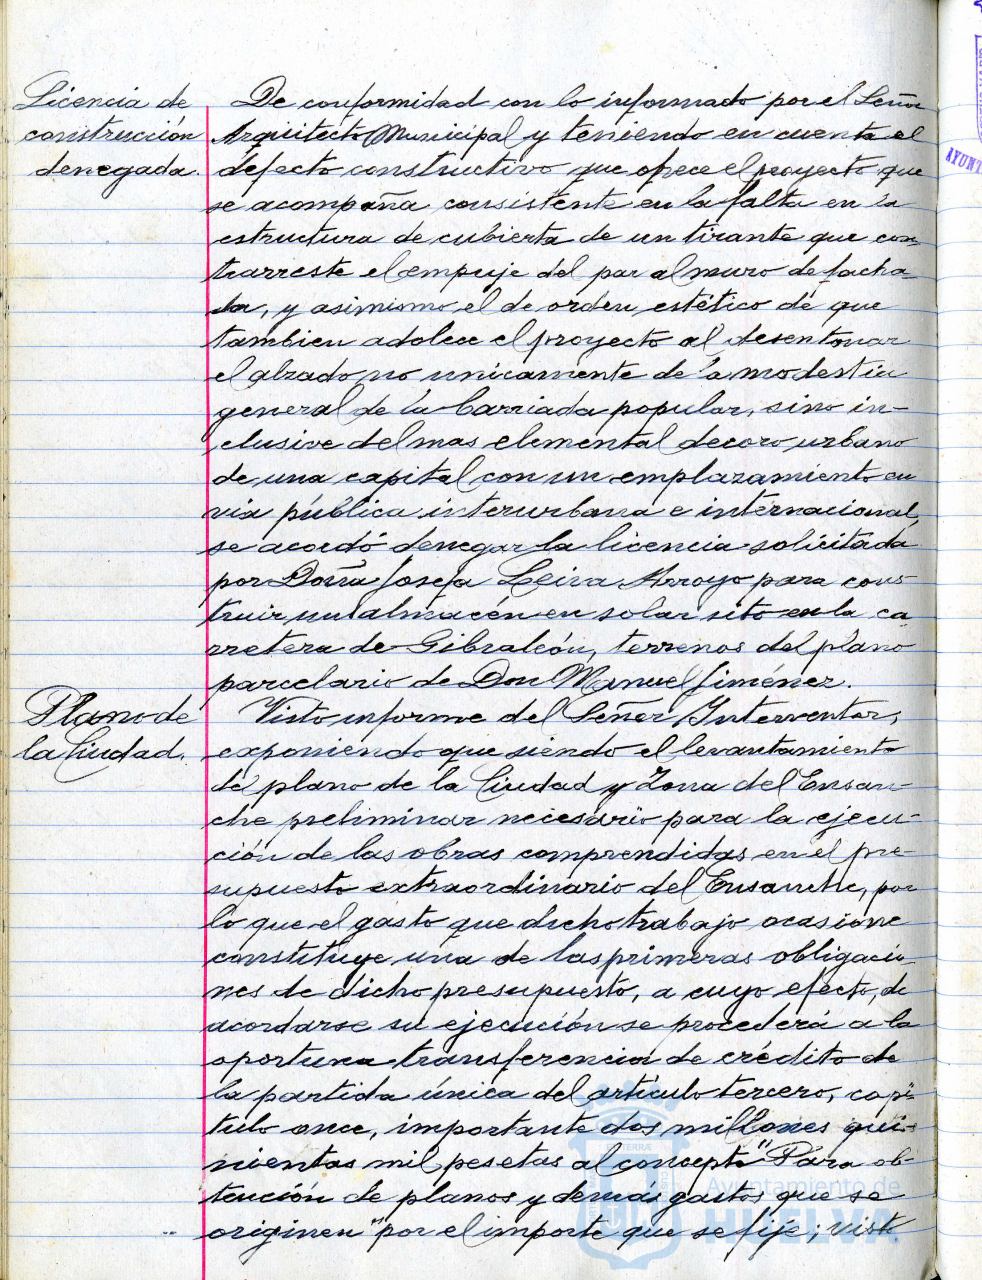 Licencia de
construcción
denegada.
De conformidad con lo informado por el Señor
Arquitecto Municipal y teniendo en cuenta el
defecto constructivo que ofrece el proyecto que
se acompaña consistente en la falta en la
estructura de cubierta de un tirante que con
trarreste el empuje del par al muro de facha-
da, y asimismo el de orden estético de que
tambien adolece el proyecto al desentonar
el alzado no unicamente de la modestia
general de la barriada popular, sino in-
clusive del mas elemental decoro urbano
de una capital con un emplazamiento en
via pública interurbana e internacional,
se acordó denegar la licencia solicitada
por Doña Josefa Leiva Arroyo para cons-
truir un almacén en solar sito en la ca
rretera de Gibraleón, terrenos del plano
parcelario de Don Manuel Jiménez.
Plano de
la Ciudad.
Visto informe del Señor Interventor,
exponiendo que siendo el levantamiento
de plano de la Ciudad y Zona del Ensan-
che preliminar necesario para la ejecu-
ción de las obras comprendidas en el pre-
supuesto extraordinario del Ensanche, por
lo que el gasto que dicho trabajo ocasione
constituye una de las primeras obligacio
nes de dicho presupuesto, a cuyo efecto, de
acordarse su ejecución se procederá a la
oportuna transferencia de crédito de
la partida única del artículo tercero, capí-
tulo once, importante dos millones qui-
nientas mil pesetas al concepto "Para ob-
tención de planos y demás gastos que se
originen" por el importe que se fije; visto
Ayuntamiento de
HUELVA
AYUNT